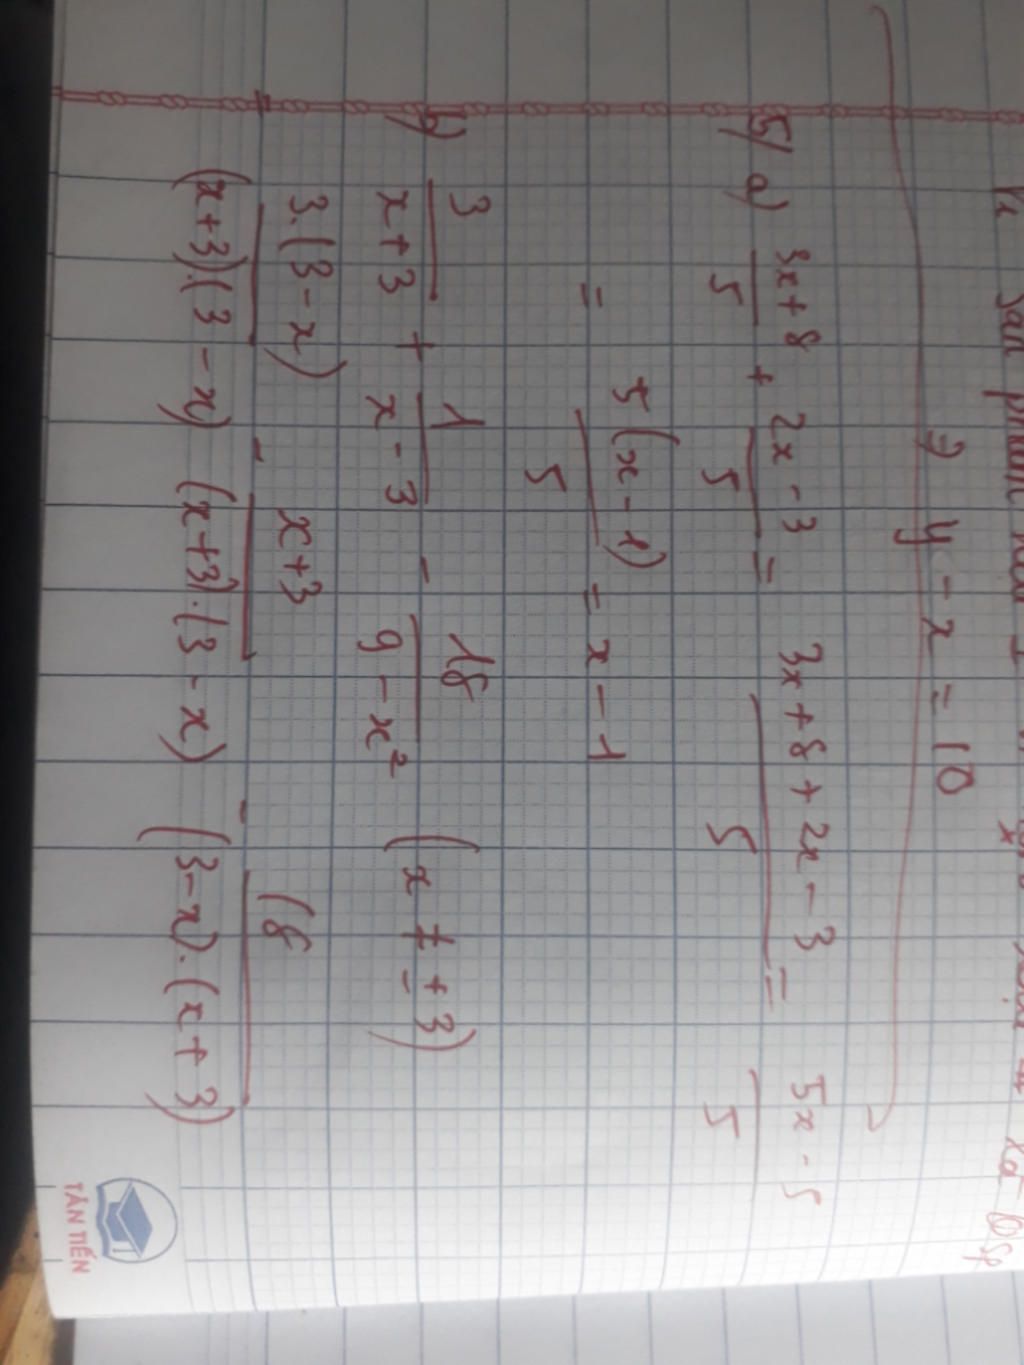 ⇒ y - x = 10
5) a) (3x+8)/5 + (2x-3)/5 = (3x+8+2x-3)/5 = (5x-5)/5
= 5(x-1)/5 = x-1
b) 3/(x+3) + 1/(x-3) - 18/(9-x²) (x ≠ ±3)
= 3.(3-x)/((x+3).(3-x)) - (x+3)/((x+3).(3-x)) - 18/((3-x).(x+3))
TÂN TIẾN